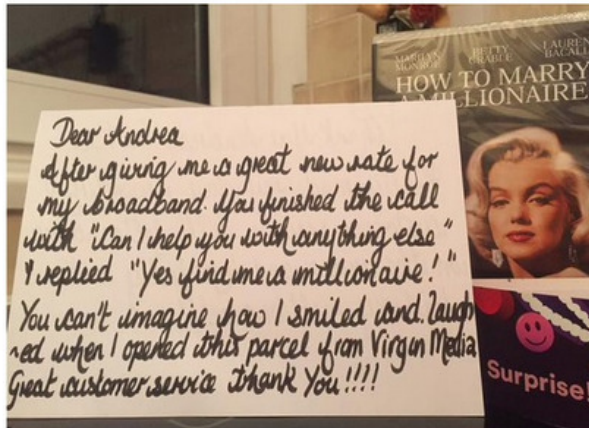 MARILYN MONROE
BETTY GRABLE
LAUREN BACALL
HOW TO MARRY
A MILLIONAIRE
Dear Andrea
After giving me a great new rate for
my broadband. You finished the call
with "Can I help you with anything else"
I replied "Yes find me a millionaire!"
You can't imagine how I smiled and. Laugh
-ed when I opened this parcel from Virgin Media
Great customer service thank You!!!!
Surprise!